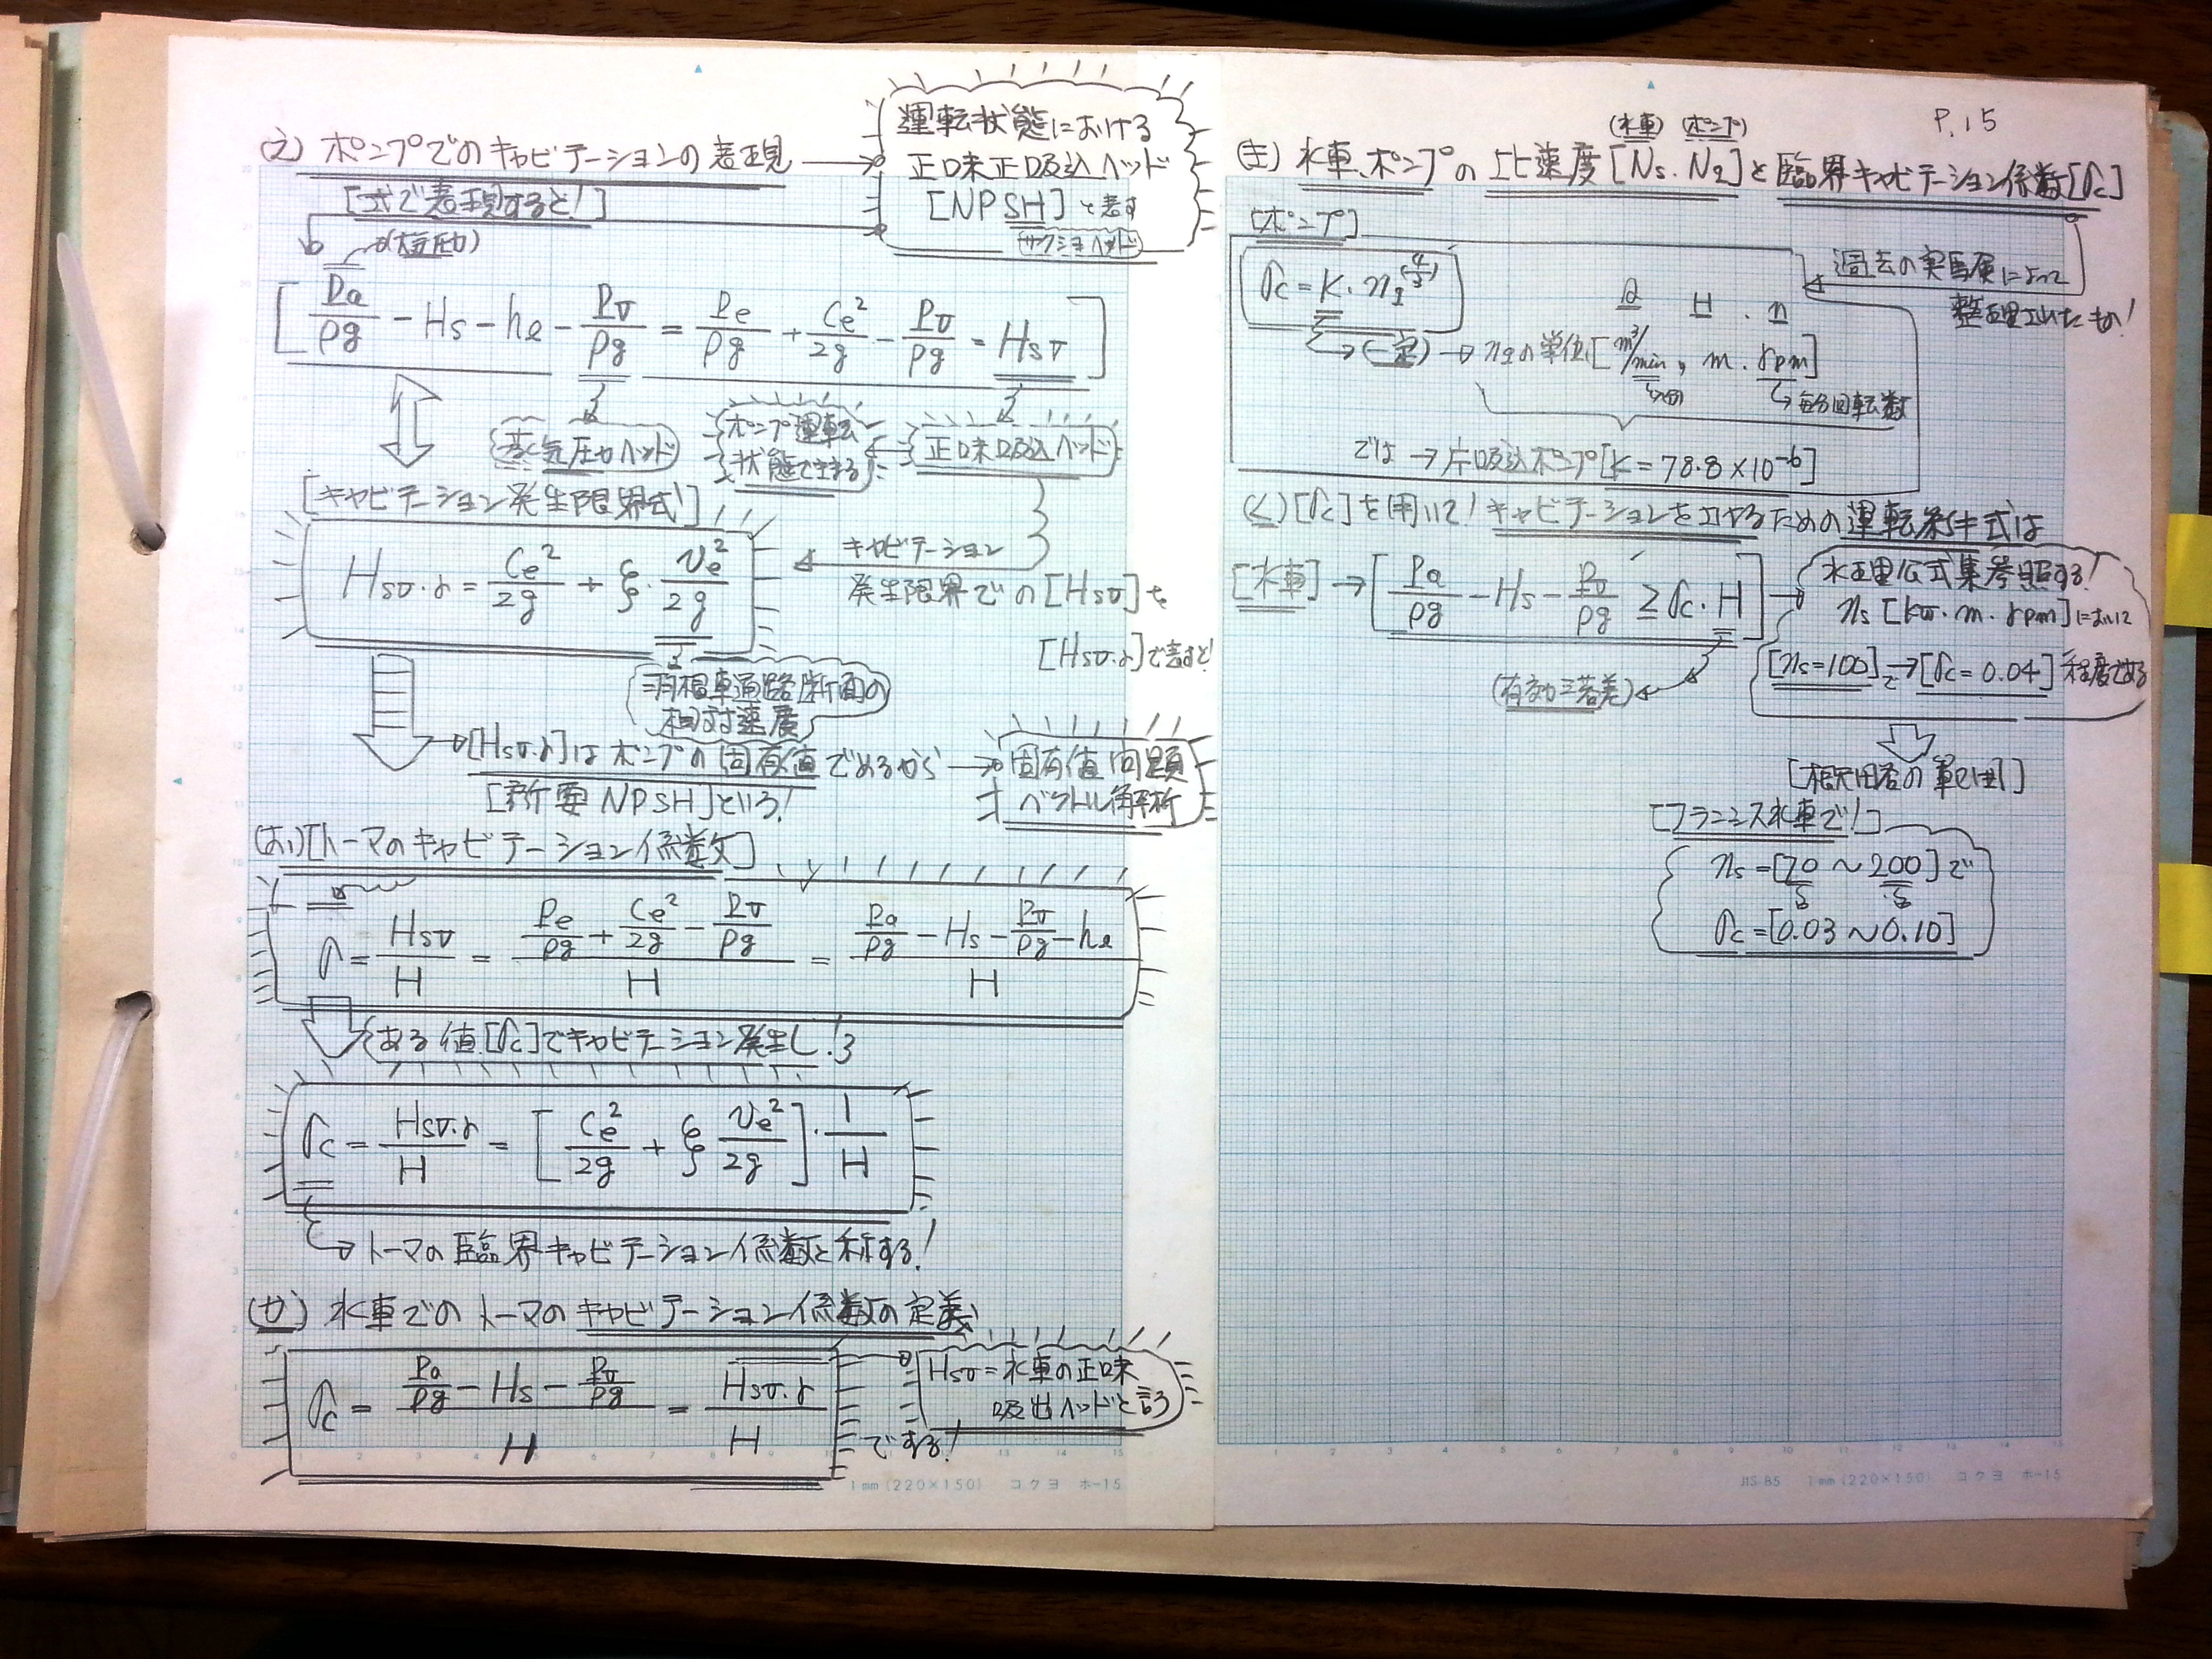 (え) ポンプでのキャビテーションの表現
運転状態における
正味正吸込ヘッド
[NPSH]と表す
(サクションヘッド)
[式で表現すると!]
(大気圧力)
[Pa/ρg - Hs - hℓ - Pv/ρg = Pe/ρg + Ce²/2g - Pv/ρg = Hsv]
蒸気圧力ヘッド
ポンプ運転
状態で定まる
正味吸込ヘッド
[キャビテーション発生限界式]
Hsv·r = Ce²/2g + ξ· ve²/2g
キャビテーション
発生限界での[Hsv]を
[Hsv.r]で表すと!
羽根車通路断面の
相対速度
[Hsv.r]はポンプの固有値であるから
[所要NPSH]という!
固有値問題
ベクトル解析
(お)[トーマのキャビテーション係数]
σ = Hsv/H = (Pe/ρg + Ce²/2g - Pv/ρg)/H = (Pa/ρg - Hs - Pv/ρg - hℓ)/H
ある値[σc]でキャビテーション発生し!
σc = Hsv.r/H = [Ce²/2g + ξ ve²/2g]· 1/H
トーマの臨界キャビテーション係数と称する!
(か) 水車でのトーマのキャビテーション係数の定義
σc = (Pa/ρg - Hs - Pv/ρg)/H = Hsv.r/H
である!
Hsv=水車の正味
吸出ヘッドと言う
P.15
(水車) (ポンプ)
(き) 水車、ポンプの比速度[Ns.Nq]と臨界キャビテーション係数[σc]
[ポンプ]
σc = K·nq^(4/3)
過去の実験によって
整理されたもの!
Q H . n
(一定) → nqの単位[m³/min, m. rpm]
分
毎分回転数
では → 片吸込ポンプ[K=78.8×10⁻⁶]
(く)[σc]を用いて!キャビテーションをさけるための運転条件式は
[水車] → [Pa/ρg - Hs - Pv/ρg ≧ σc·H]
(有効落差)
水理公式集参照する!
ns [kw.m.rpm]において
[ns=100]で→[σc=0.04]程度である
[フランシス水車で!]
ns=[70~200]で
σc=[0.03~0.10]
JIS-85 1mm(220×150) コクヨ ホ-15
1mm(220×150) コクヨ ホ-15